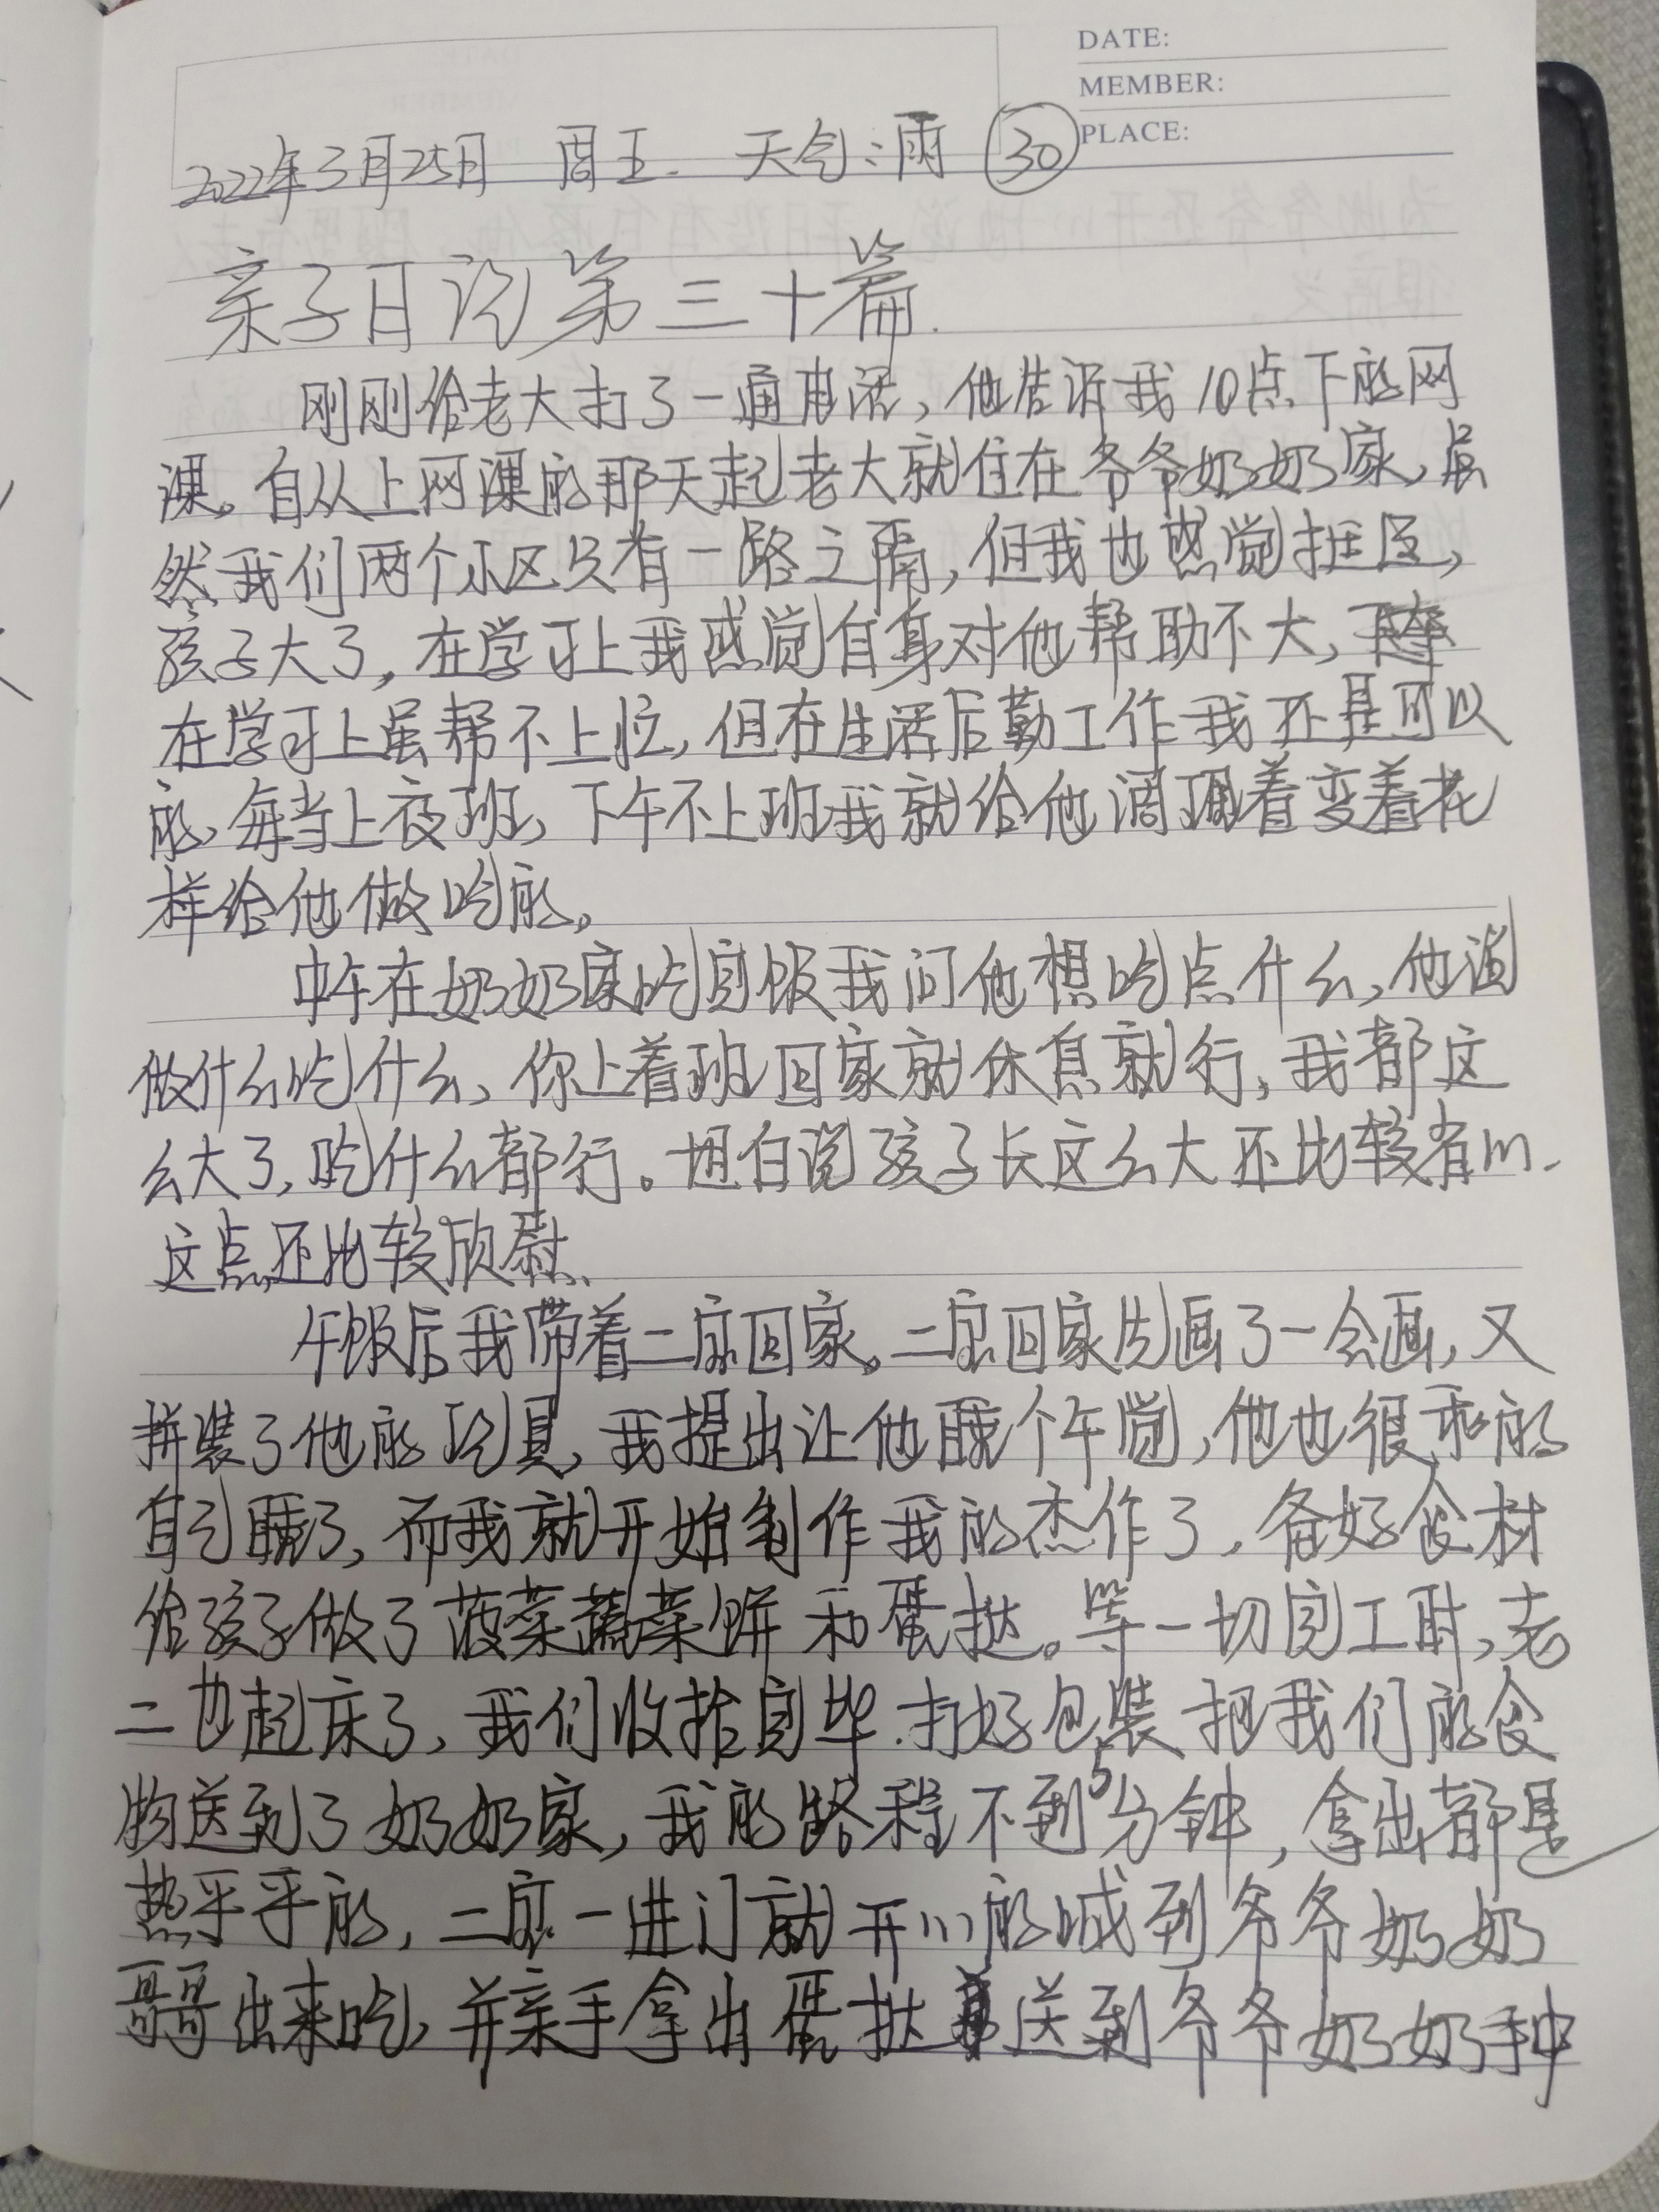 DATE:
MEMBER:
PLACE:
2022年3月25日 周五. 天气:雨 ㉚
亲子日记第三十篇.
刚刚给老大打了一通电话,他告诉我10点下的网
课。自从上网课的那天起老大就住在爷爷奶奶家,虽
然我们两个小区只有一路之隔,但我也感觉挺远,
孩子大了,在学习上我感觉自身对他帮助不大,
在学习上虽帮不上忙,但在生活后勤工作我还是可以
的,每当上夜班,下午不上班我就给他调理着变着花
样给他做吃的。
中午在奶奶家吃完饭我问他想吃点什么,他说
做什么吃什么,你上着班回家就休息就行,我都这
么大了,吃什么都行。坦白说孩子长这么大还比较省心.
这点还比较欣慰、
午饭后我带着二宝回家。二宝回家先画了一会画,又
拼装了他的玩具,我提出让他睡个午觉,他也很乖的
自己睡了,而我就开始制作我的杰作了,备好食材
给孩子做了菠菜蔬菜饼和蛋挞。等一切完工时,老
二也起床了,我们收拾完毕.打好包装把我们的食
物送到了奶奶家,我的路程不到5分钟,拿出都是
热乎乎的,二宝一进门就开心的喊到爷爷奶奶
哥哥出来吃,并亲手拿出蛋挞送到爷爷奶奶手中